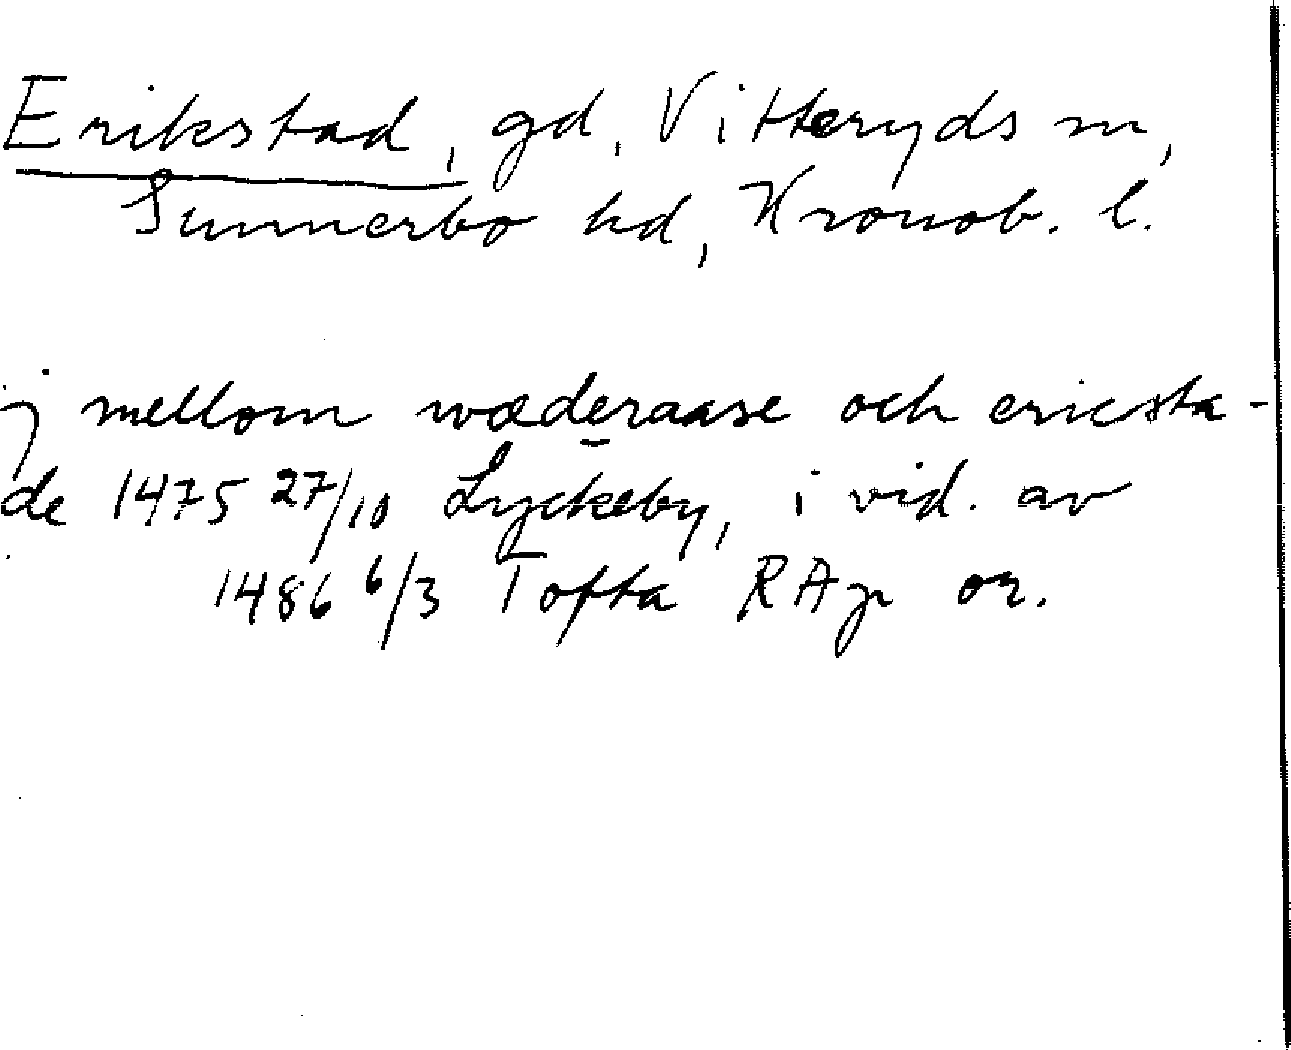 Erikstad, gd, Vitteryds sn,
Sunnerbo hd, Kronob. l.
j mellom wæderaase och ericsta-
de 1475 27/10 Lyckeby, i vid. av
1486 6/3 Tofta RAp or.